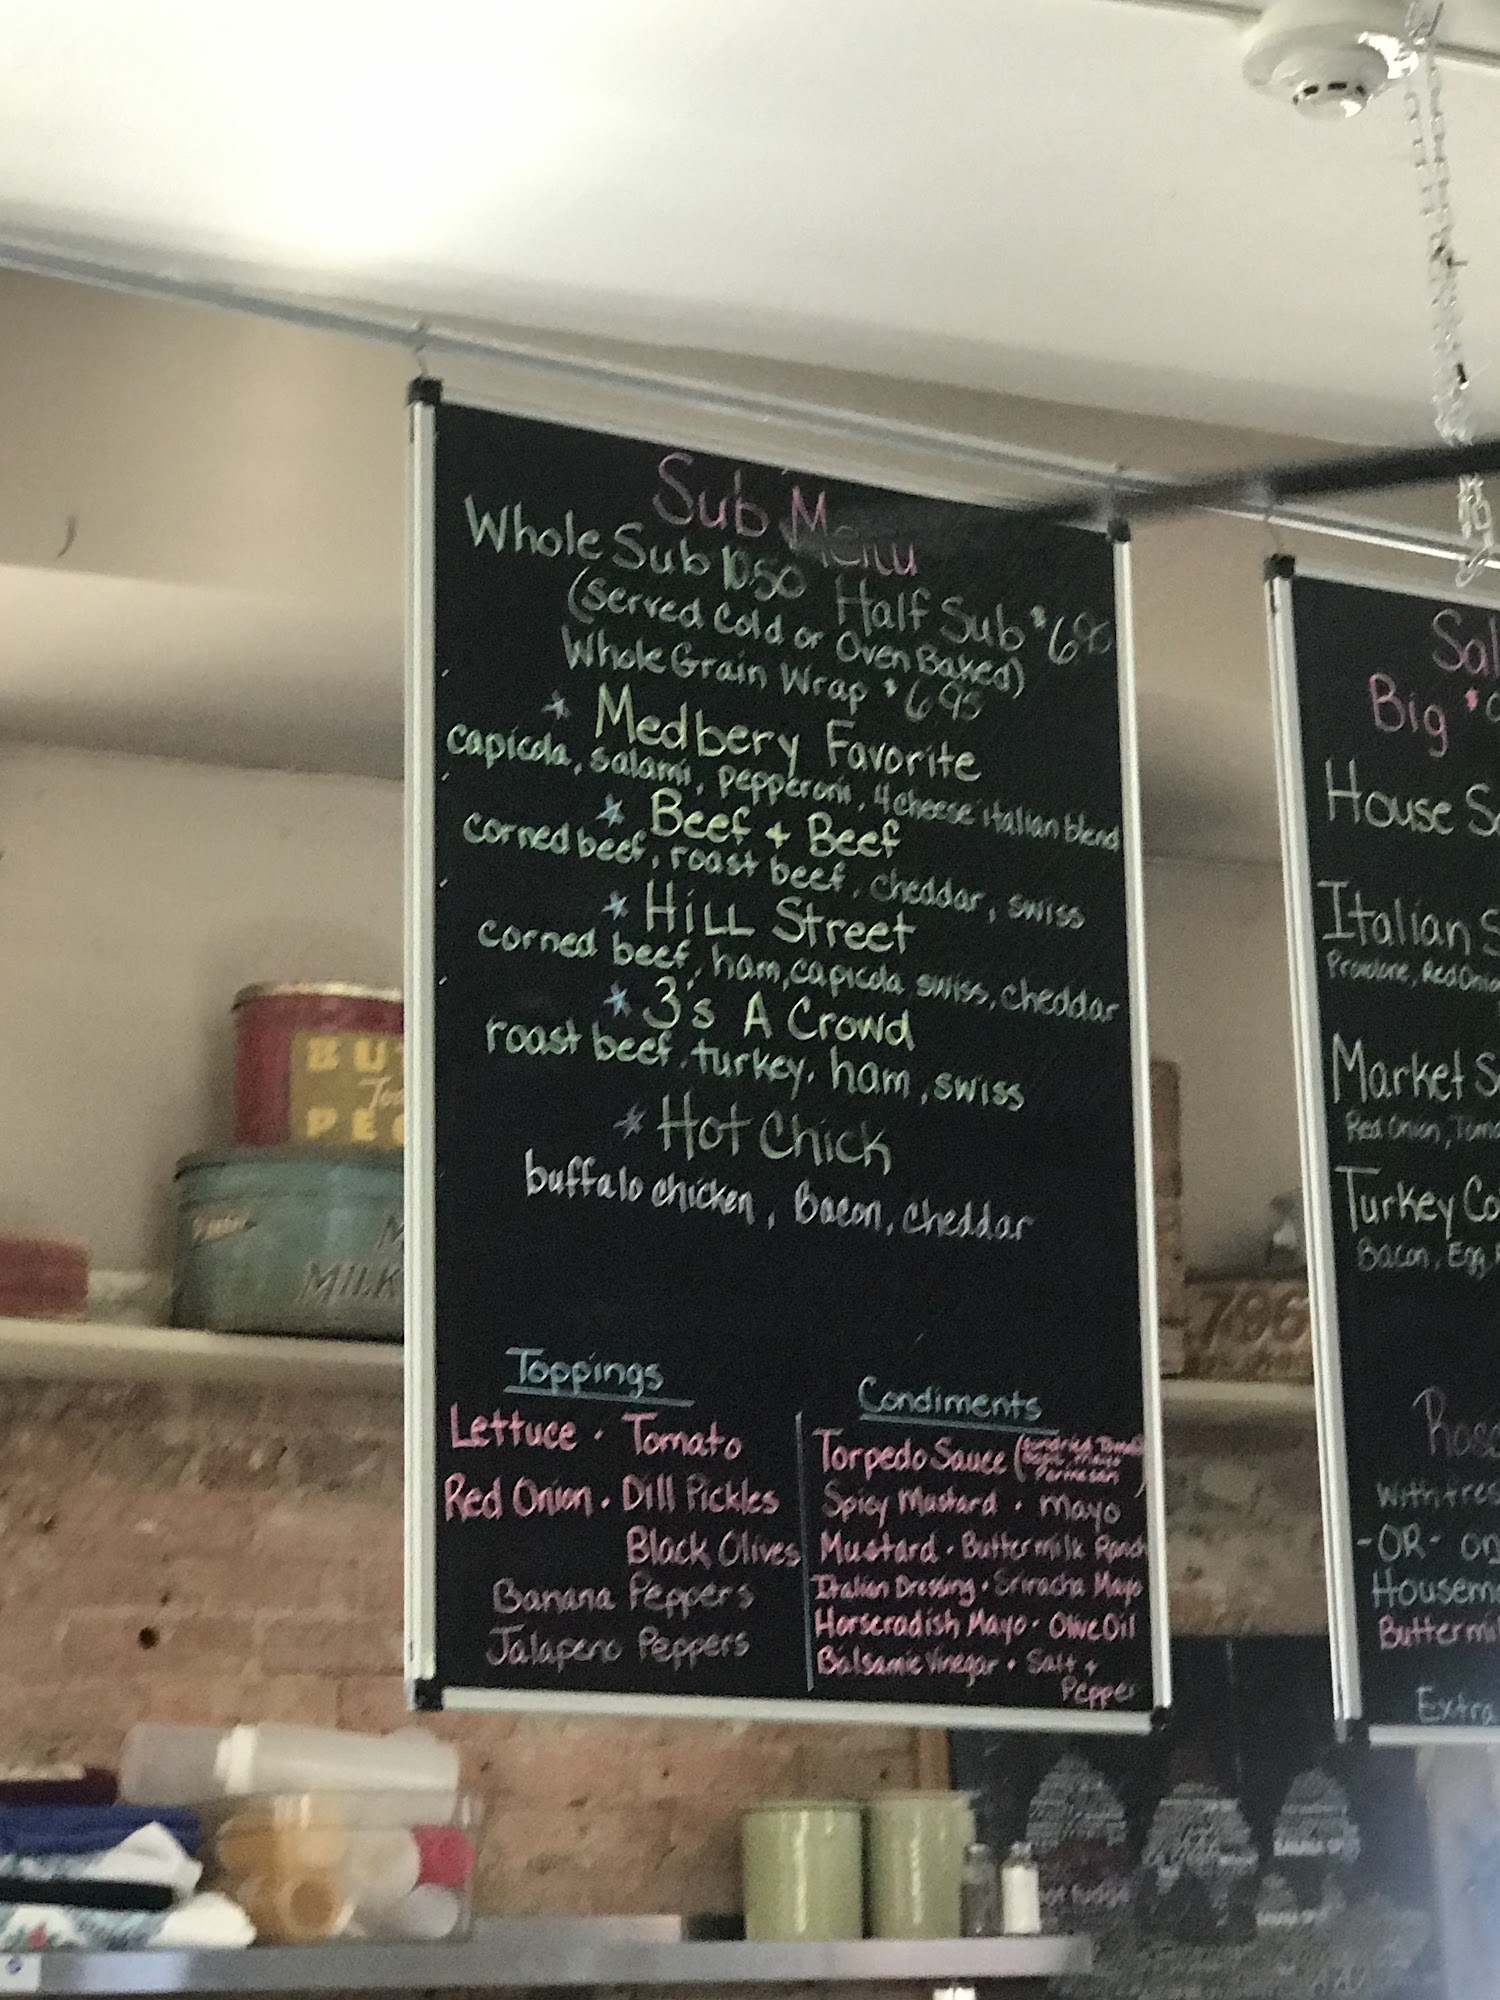 Sub Menu
Whole Sub 10.50 Half Sub $6.95
(Served Cold or Oven Baked)
Whole Grain Wrap $6.95
* Medbery Favorite
capicola, salami, pepperoni, 4 cheese italian blend
* Beef + Beef
corned beef, roast beef, cheddar, swiss
* HiLL Street
corned beef, ham, capicola, swiss, cheddar
* 3's A Crowd
roast beef, turkey, ham, swiss
* Hot Chick
buffalo chicken, Bacon, cheddar
Toppings
Lettuce · Tomato
Red Onion · Dill Pickles
Black Olives
Banana Peppers
Jalapeno Peppers
Condiments
Torpedo Sauce (sundried Tomato
Basil, Mayo
Parmesan)
Spicy Mustard · Mayo
Mustard · Buttermilk Ranch
Italian Dressing · Sriracha Mayo
Horseradish Mayo · Olive Oil
Balsamic Vinegar · Salt +
Pepper
Big
House
Italian
Provolone, Red Onion
Market
Red Onion,
Turkey
Bacon, Egg
with
-OR- on
Extra
BU
PE
MILK
796